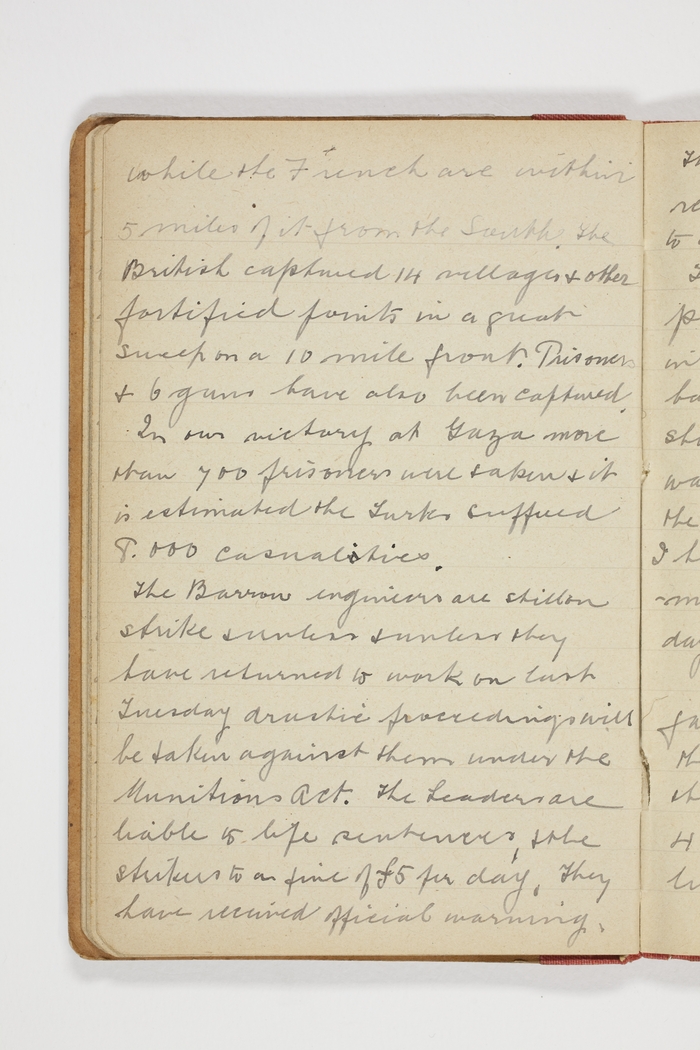 while the French are within
5 miles of it from the South. The
British captured 14 villages & other
fortified points in a great
sweep on a 10 mile front. Prisoners
& 6 guns have also been captured.
In our victory at Gaza more
than 700 prisoners were taken & it
is estimated the Turks suffered
8.000 casualities.
The Barrow engineers are still on
strike & unless & unless they
have returned to work on last
Tuesday drastic proceedings will
be taken against them under the
Munitions Act. The Leaders are
liable to life sentences, & the
strikers to a fine of £5 per day. They
have received official warning.